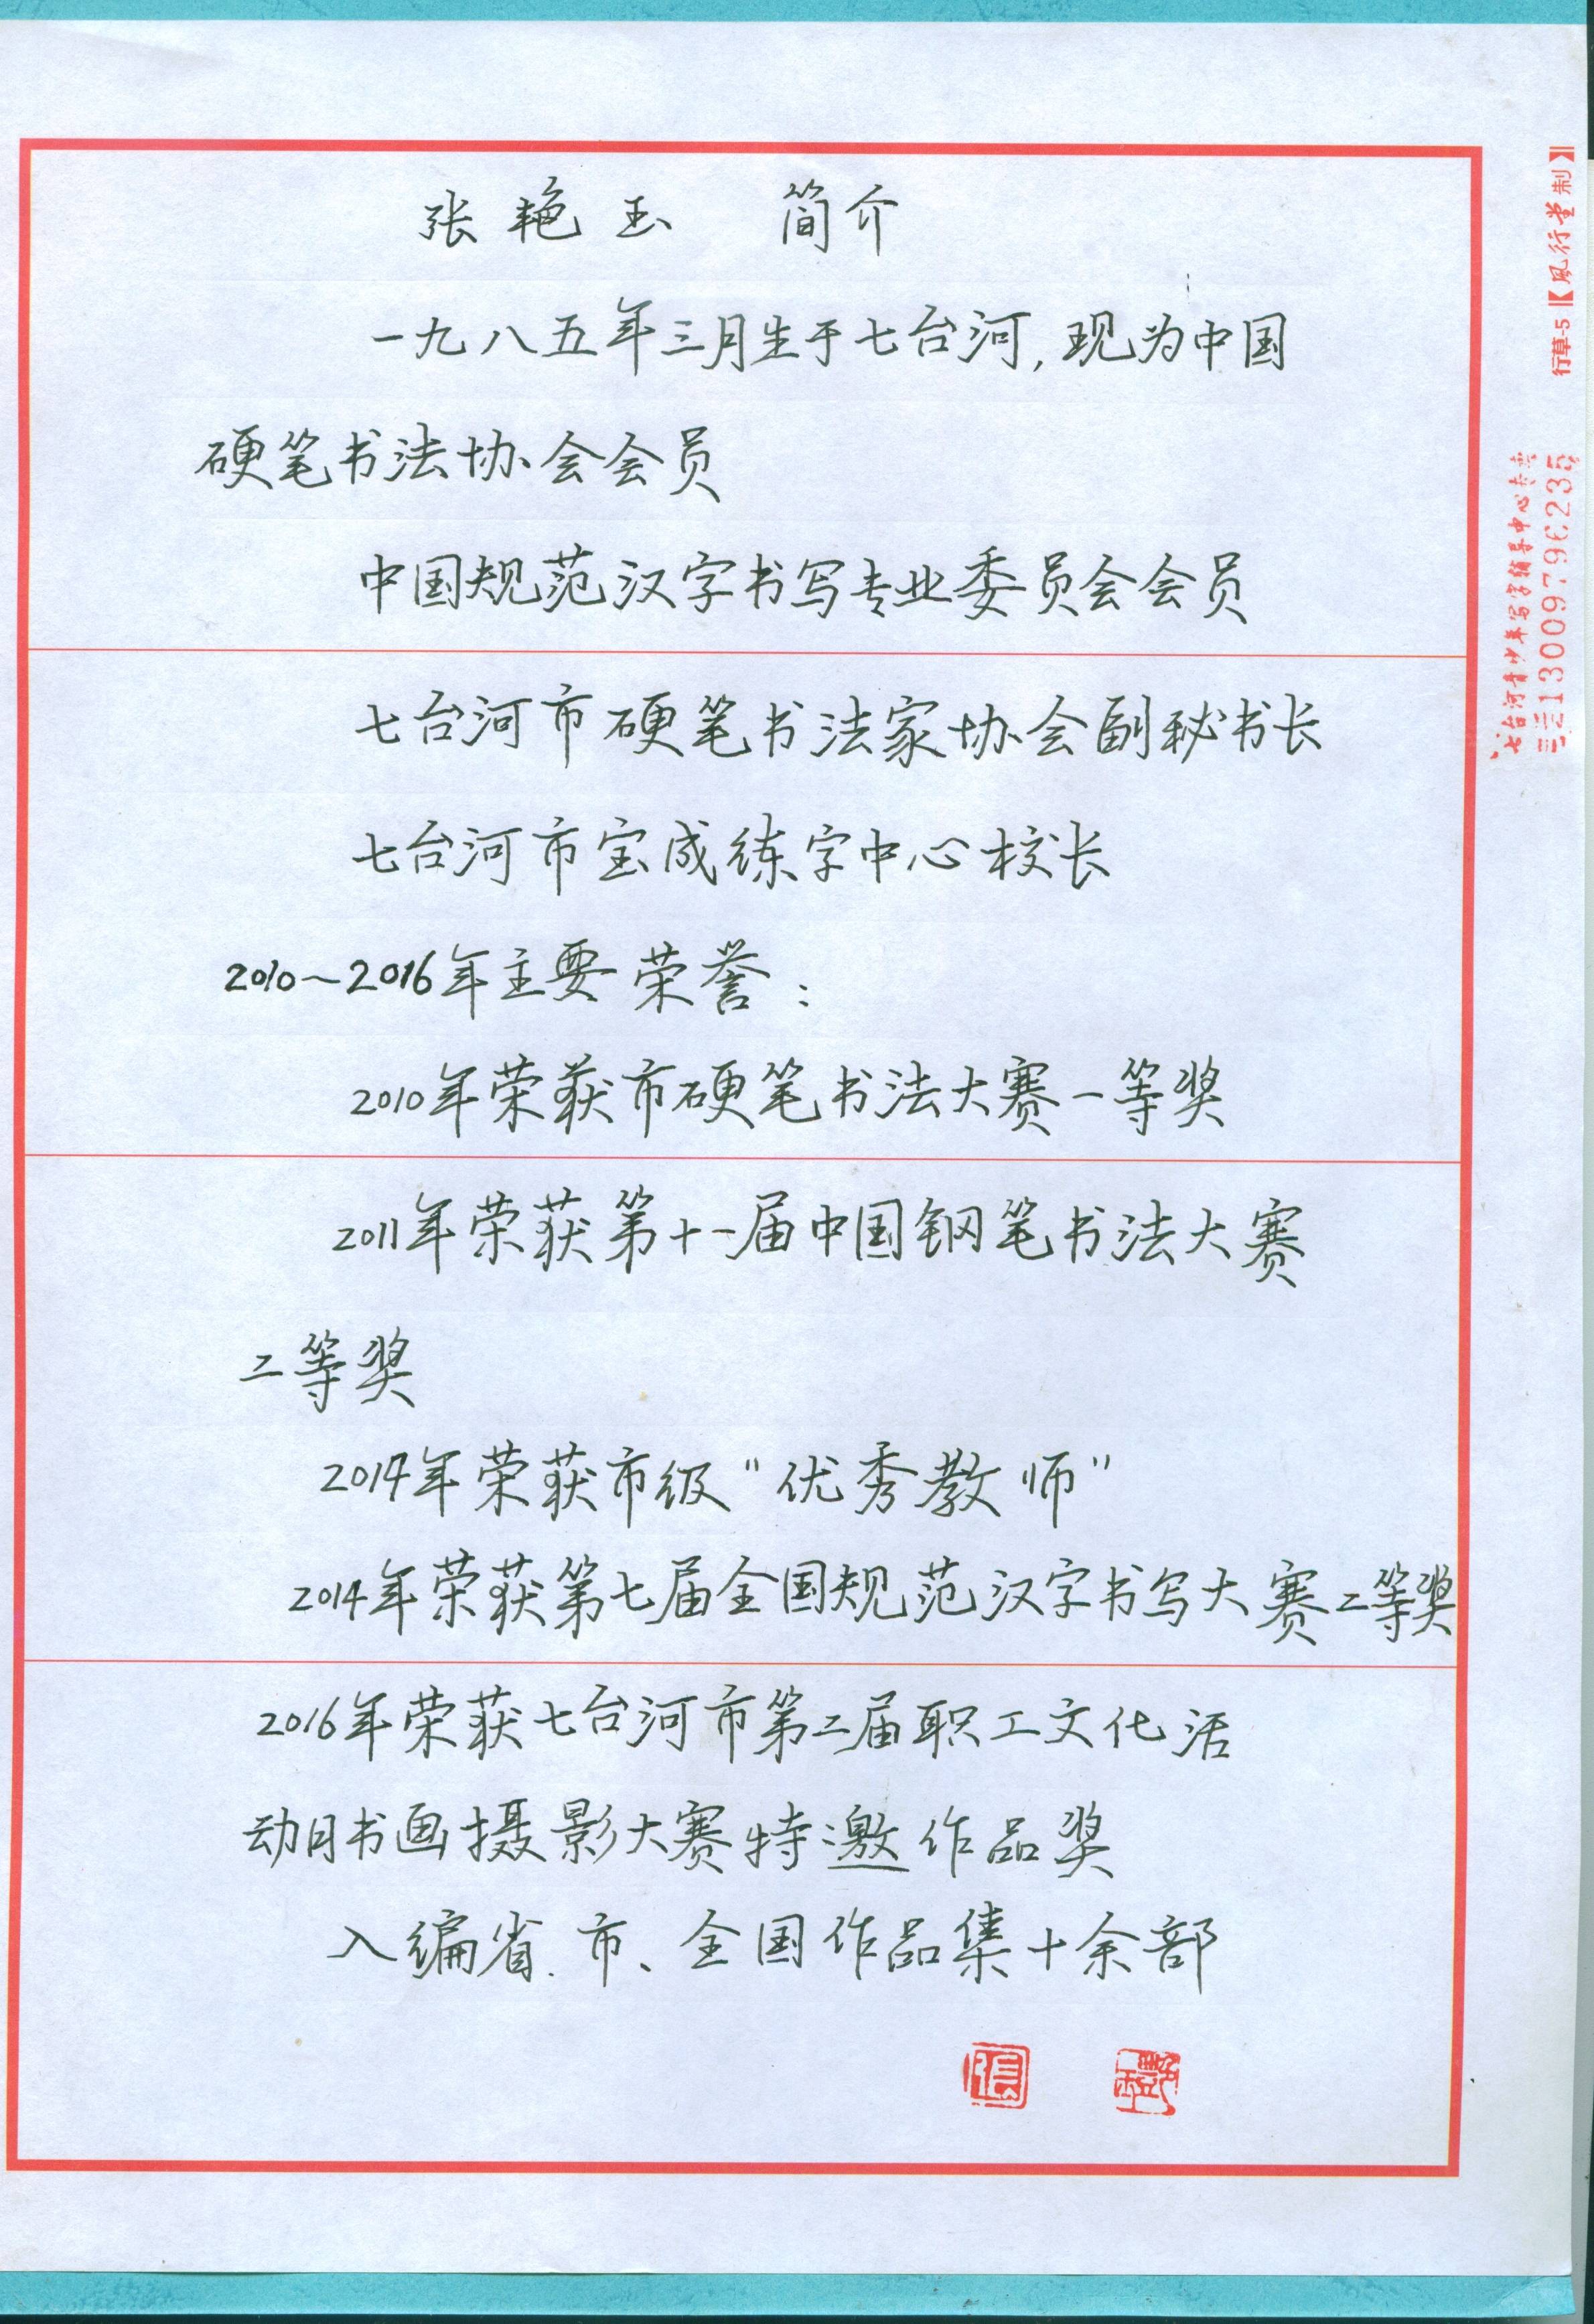 张艳玉 简介
一九八五年三月生于七台河，现为中国
硬笔书法协会会员
中国规范汉字书写专业委员会会员
七台河市硬笔书法家协会副秘书长
七台河市宝成练字中心校长
2010～2016年主要荣誉：
2010年荣获市硬笔书法大赛一等奖
2011年荣获第十一届中国钢笔书法大赛
二等奖
2014年荣获市级“优秀教师”
2014年荣获第七届全国规范汉字书写大赛二等奖
2016年荣获七台河市第二届职工文化活
动月书画摄影大赛特邀作品奖
入编省、市、全国作品集十余部
行草-5【風行堂制】
七台河青少年写字辅导中心专卖
13009796235
張